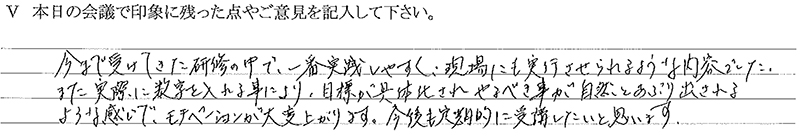 V 本日の会議で印象に残った点やご意見を記入して下さい。
今まで受けてきた研修の中で、一番実践しやすく、現場にも実行させられるような内容でした。
また実際に数字を入れる事により、目標が具体化され やるべき事が自然とあぶり出される
ような感じで、モチベーションが大変上がります。今後も定期的に受講したいと思います。